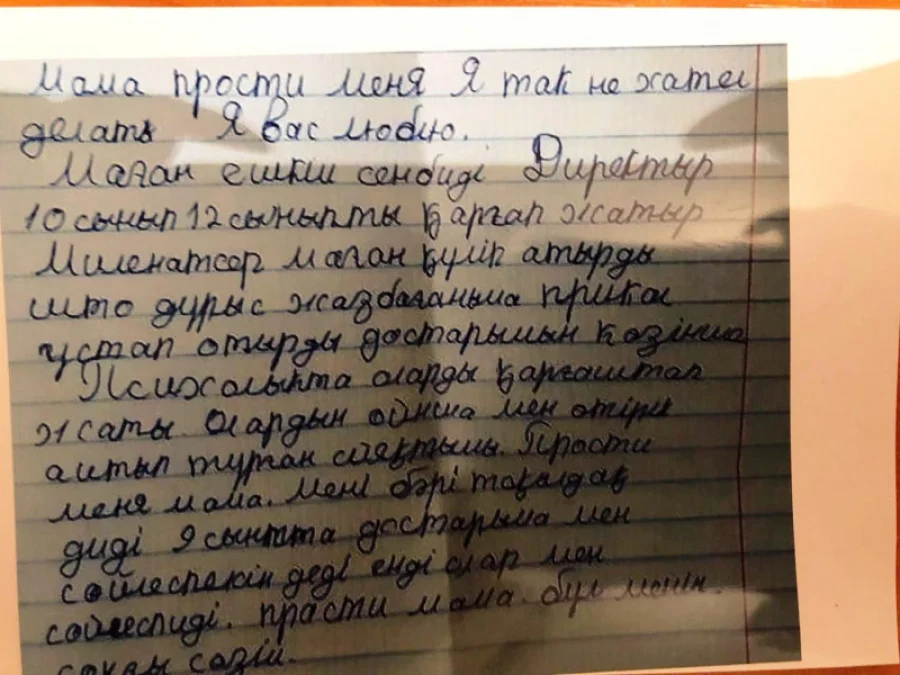 Мама прости меня Я так не хател
делать Я вас люблю.
Маған ешкім сенбиді Директыр
10 сынып 12 сыныпты қарғап жатыр
Миленатсор маған күліп атырды
што дұрыс жазбағаныма прикол
ұстап отырды достарымын көзінша
Психолыкта оларды қарғаштап
жаты. Олардын ойнша мен өтірік
аитып тұрған сияқтымы. Прости
меня мама. Мені бәрі
диді 9 сынпта достарыма мен
сөйлеспекін деді енді олар мен
сөйлеспиді. прасти мама. бұл менін
соңғы сөзім.